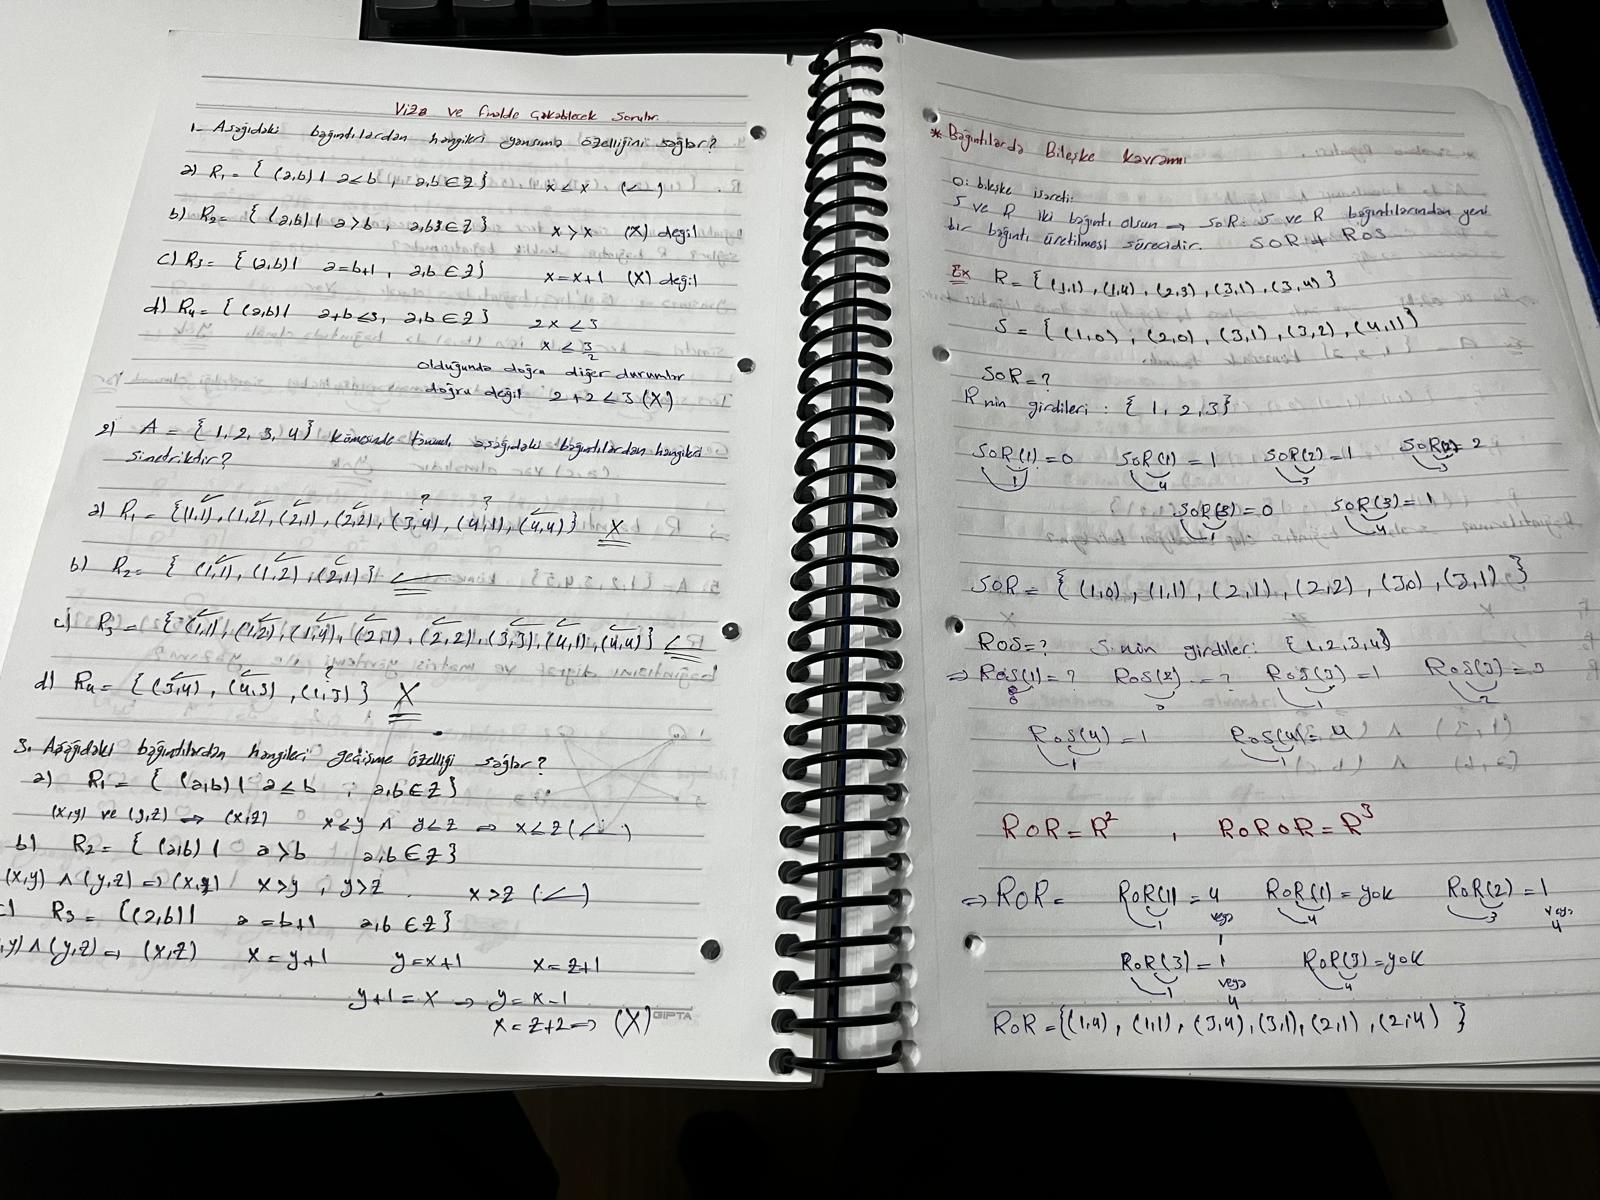 Viza ve finalde Çıkabilecek Sorular.
1- Aşağıdaki bağıntılardan hangileri yansıma özelliğini sağlar?
a) R₁ = { (a,b) | a≤b , a,b ∈ Z } x ≤ x (✓)
b) R₂ = { (a,b) | a>b , a,b ∈ Z } x>x (X) değil
c) R₃ = { (a,b) | a=b+1 , a,b ∈ Z } x=x+1 (X) değil
d) R₄ = { (a,b) | a+b≤3, a,b ∈ Z } 2x ≤ 3
x ≤ 3/2
olduğunda doğru diğer durumlar
doğru değil 2+2≤3 (X)
2) A = { 1, 2, 3, 4 } kümesinde tanımlı aşağıdaki bağıntılardan hangileri
simetriktir?
? ?
a) R₁ = {(1,1), (1,2), (2,1), (2,2), (3,4), (4,1), (4,4)} X
b) R₂ = { (1,1), (1,2), (2,1) } ✓
c) R₃ = { (1,1), (1,2), (1,4), (2,1), (2,2), (3,3), (4,1), (4,4)} ✓
?
d) R₄ = { (3,4), (4,3), (1,3) } X
3. Aşağıdaki bağıntılardan hangileri geçişme özelliği sağlar?
a) R₁ = { (a,b) | a≤b ; a,b ∈ Z }
(x,y) ve (y,z) → (x,z) x≤y ∧ y≤z ⇒ x≤z (✓)
b) R₂ = { (a,b) | a>b a,b ∈ Z }
(x,y) ∧ (y,z) ⇒ (x,z) x>y , y>z x>z (✓)
c) R₃ = {(a,b) | a=b+1 a,b ∈ Z }
,y) ∧ (y,z) ⇒ (x,z) x=y+1 y=x+1 x=z+1
y+1=x → y=x-1
x=z+2 ⇒ (X)
GIPTA
* Bağıntılarda Bileşke kavramı
O: bileşke işareti
S ve R iki bağıntı olsun → SoR: S ve R bağıntılarından yeni
bir bağıntı üretilmesi sürecidir. SOR ≠ ROS
Ex R = { (1,1), (1,4), (2,3), (3,1), (3,4) }
S = { (1,0), (2,0), (3,1), (3,2), (4,1) }
SOR=?
R nin girdileri : { 1, 2, 3 }
SoR(1) = 0 SoR(1) = 1 SoR(2) = 1 SoR(2) = 2
1 4 3 3
SoR(3) = 0 SoR(3) = 1
1 4
SOR = { (1,0), (1,1), (2,1), (2,2), (3,0), (3,1) }
ROS=? S nin girdiler: {1,2,3,4}
⇒ ROS(1)=? ROS(2) = ? ROS(3) = 1 ROS(3) = 3
0 0 1 2
ROS(4) = 1 ROS(4) = 4
1 1
ROR = R² , ROROR = R³
⇒ ROR = ROR(1) = 4 ROR(1) = yok ROR(2) = 1
1 veya 4 3 veya
1 4
ROR(3) = 1 ROR(3) = yok
1 veya 4
4
ROR = {(1,4), (1,1), (3,4), (3,1), (2,1), (2,4) }